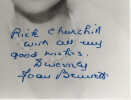 Rick Churchill
with all my
good wishes.
Sincerely
Joan Bennett